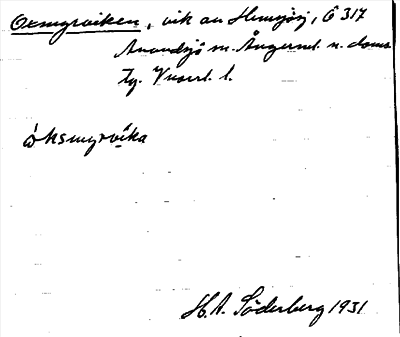 Oxmyrviken, vik av Hemsjön, Ö 317
Anundsjö sn. Ångerml. n. doms.
tg. Vnorrl. l.
òksmyrvika
H.A. Söderberg 1931